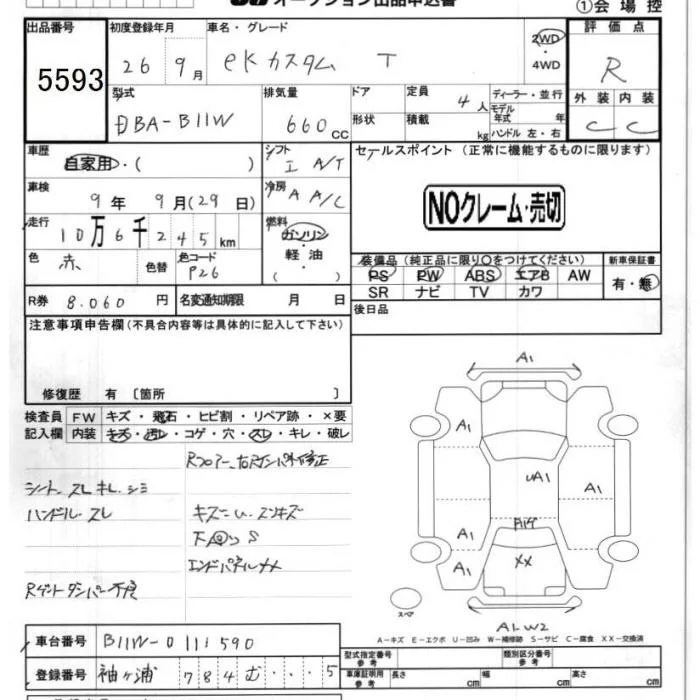 オークション出品申込書
①会場控
出品番号 初度登録年月 車名・グレード 2WD 4WD 評価点
5593 26 9月 eKカスタム T R
型式 排気量 ドア 定員 4人 ディーラー・並行 外装 内装
DBA-B11W 660CC 形状 積載 kg モデル年式 年 ハンドル 左・右 C C
車歴 シフト セールスポイント(正常に機能するものに限ります)
自家用・( ) I A/T
車検 冷房
9年 9月(29日) A A/C NOクレーム・売切
走行 燃料
10万6千245km ガソリン・軽油( )
色 色替 色コード 装備品(純正品に限り○をつけてください) 新車保証書
赤 P26 PS PW ABS エアB AW 有・無
SR ナビ TV カワ
R券 8.060円 名変通知期限 月 日 後日品
注意事項申告欄(不具合内容等は具体的に記入して下さい)
修復歴 有〔箇所 〕
検査員 FW キズ・飛石・ヒビ割・リペア跡・×要
記入欄 内装 キズ・汚レ・コゲ・穴・スレ・キレ・破レ
Rフロアー、右Rインパネ修正
シート、スレ キレ、シミ
ハンドル、スレ キズ
エンドパネル
Rゲートダンパー不良
A1
A1
UA1 A1
A1
A1
XX
スペア
ALW2
A-キズ E-エクボ U-凹み W-補修跡 S-サビ C-腐食 XX-交換済
車台番号 B11W-0111590
型式指定番号 参考 類別区分番号 参考
登録番号 袖ヶ浦 784 む ・・・5
車庫証明用 参考 長さ cm 幅 cm 高さ cm